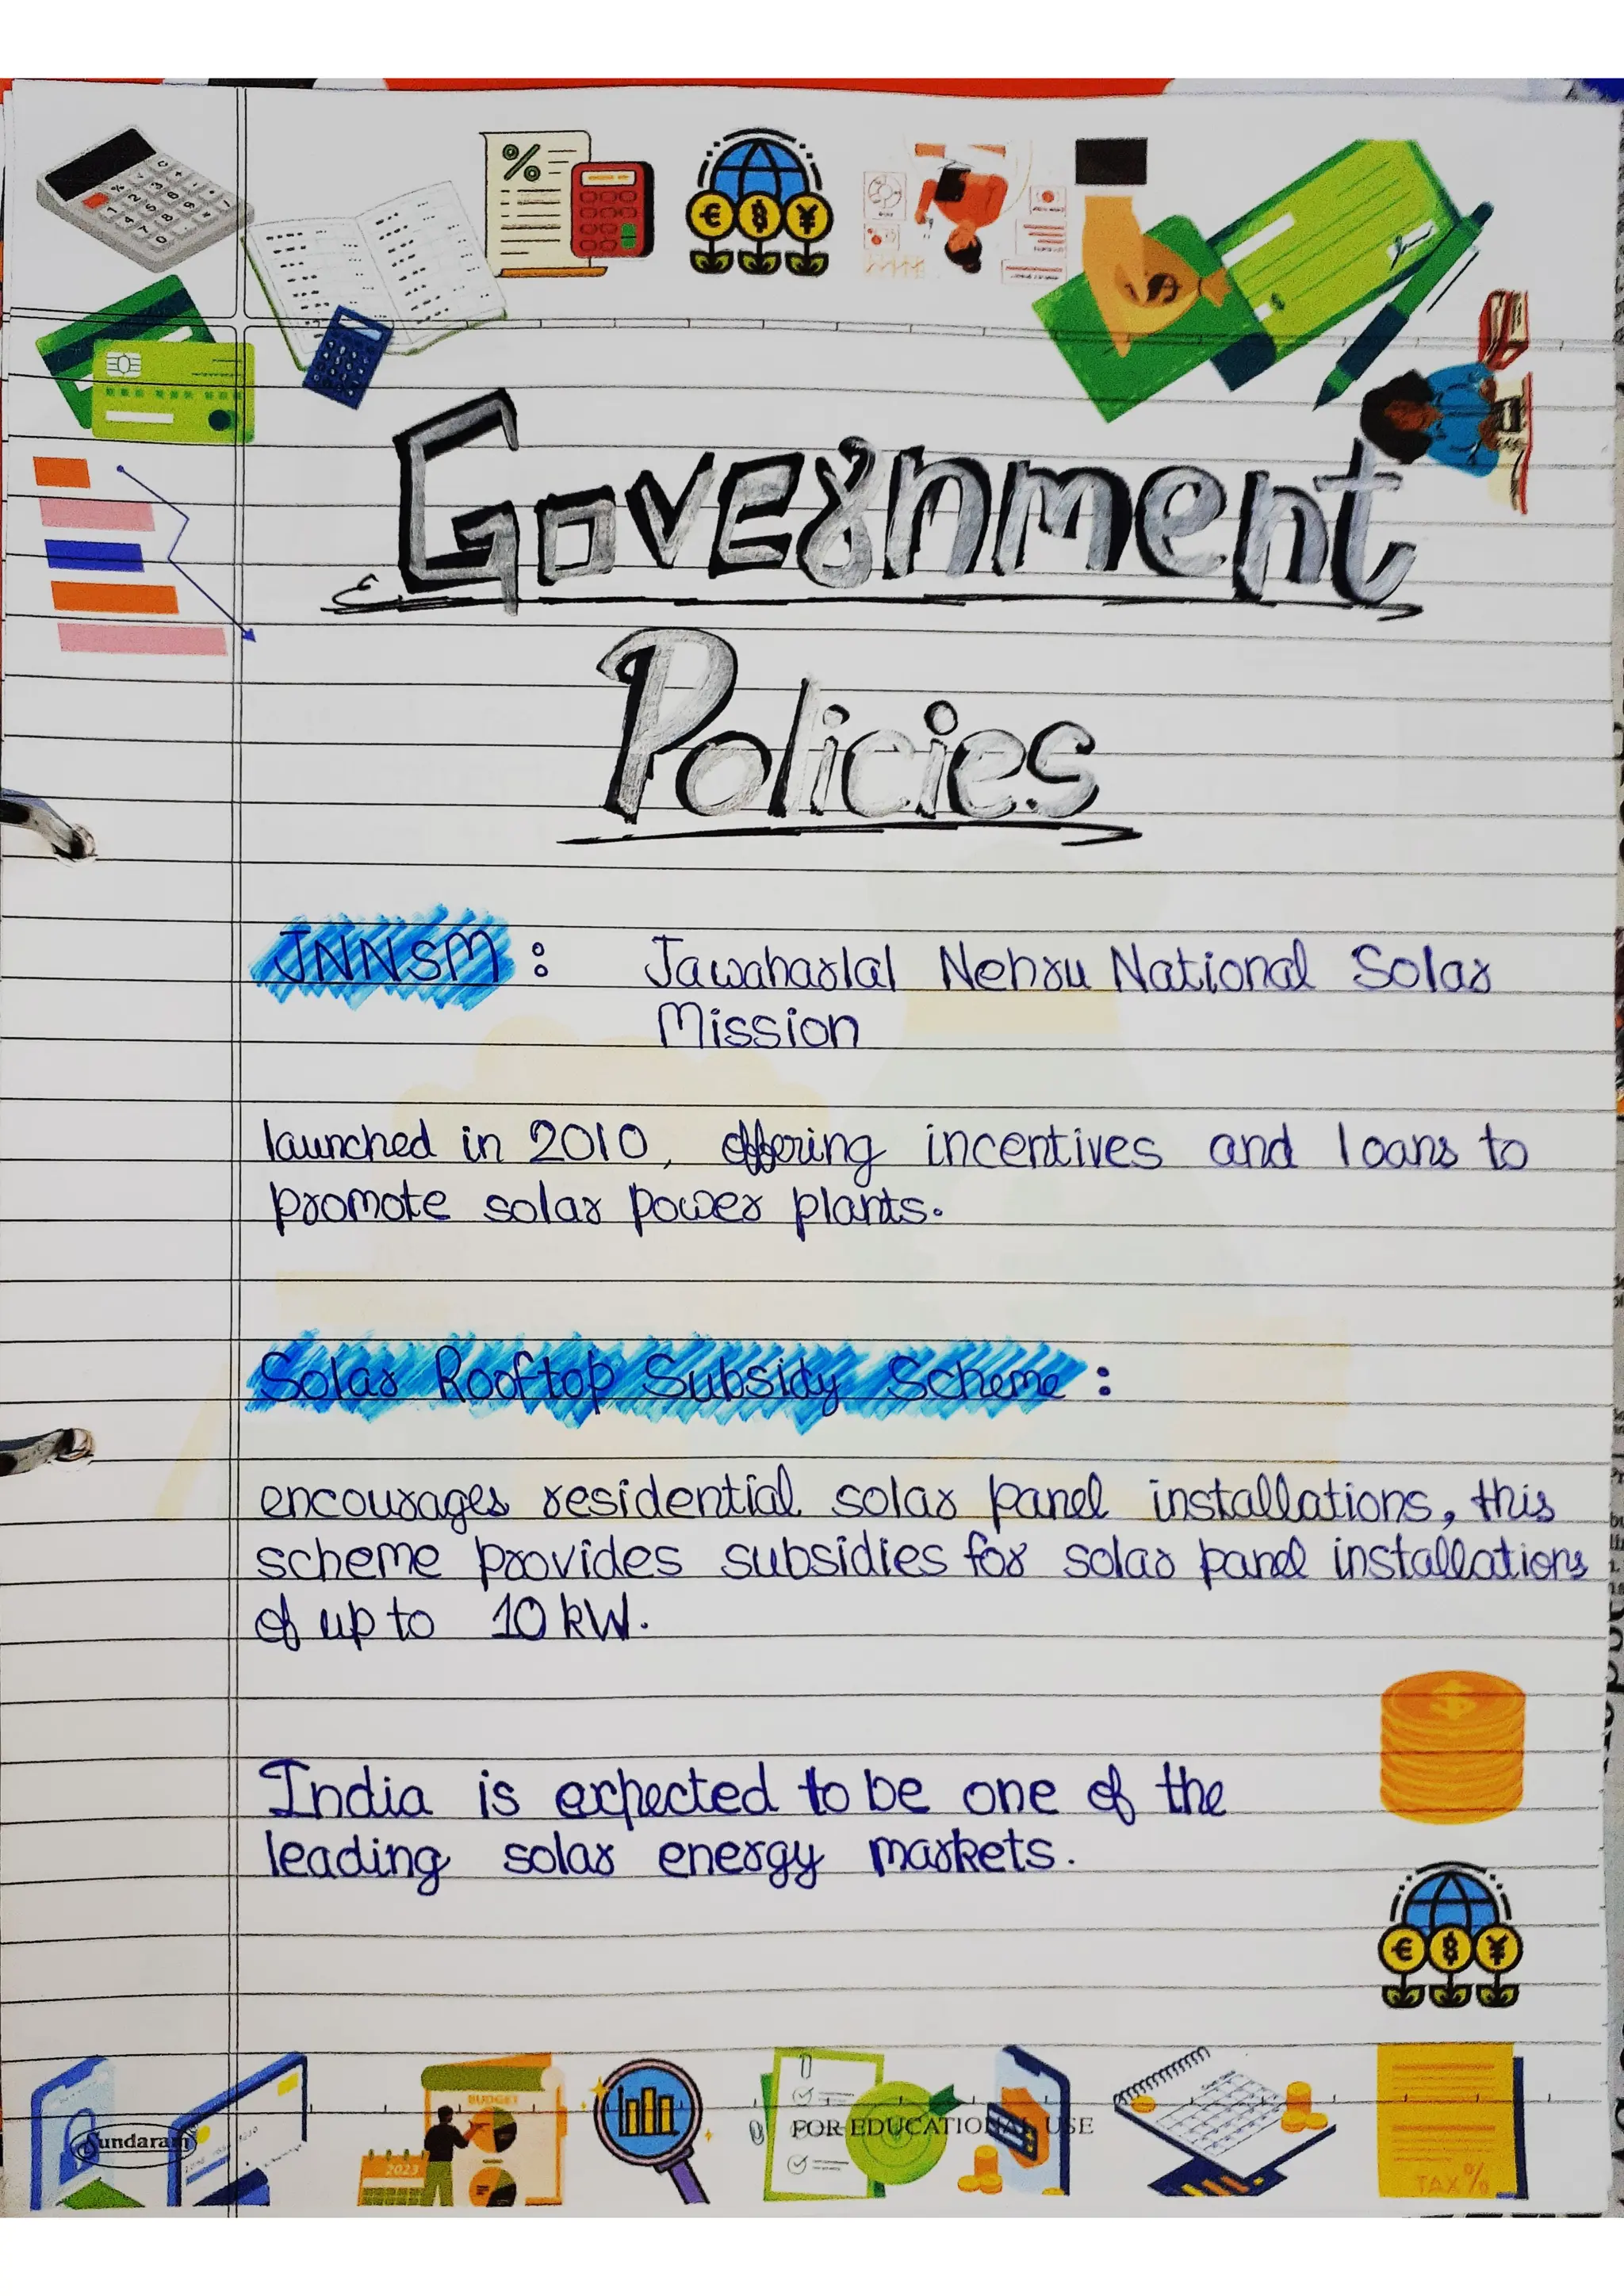 Government
Policies
JNNSM : Jawaharlal Nehru National Solar
Mission
launched in 2010, offering incentives and loans to
promote solar power plants.
Solar Rooftop Subsidy Scheme :
encourages residential solar panel installations, this
scheme provides subsidies for solar panel installations
of up to 10 kW.
India is expected to be one of the
leading solar energy markets.
BUDGET
2023
Sundaram
FOR EDUCATIONAL USE
TAX %